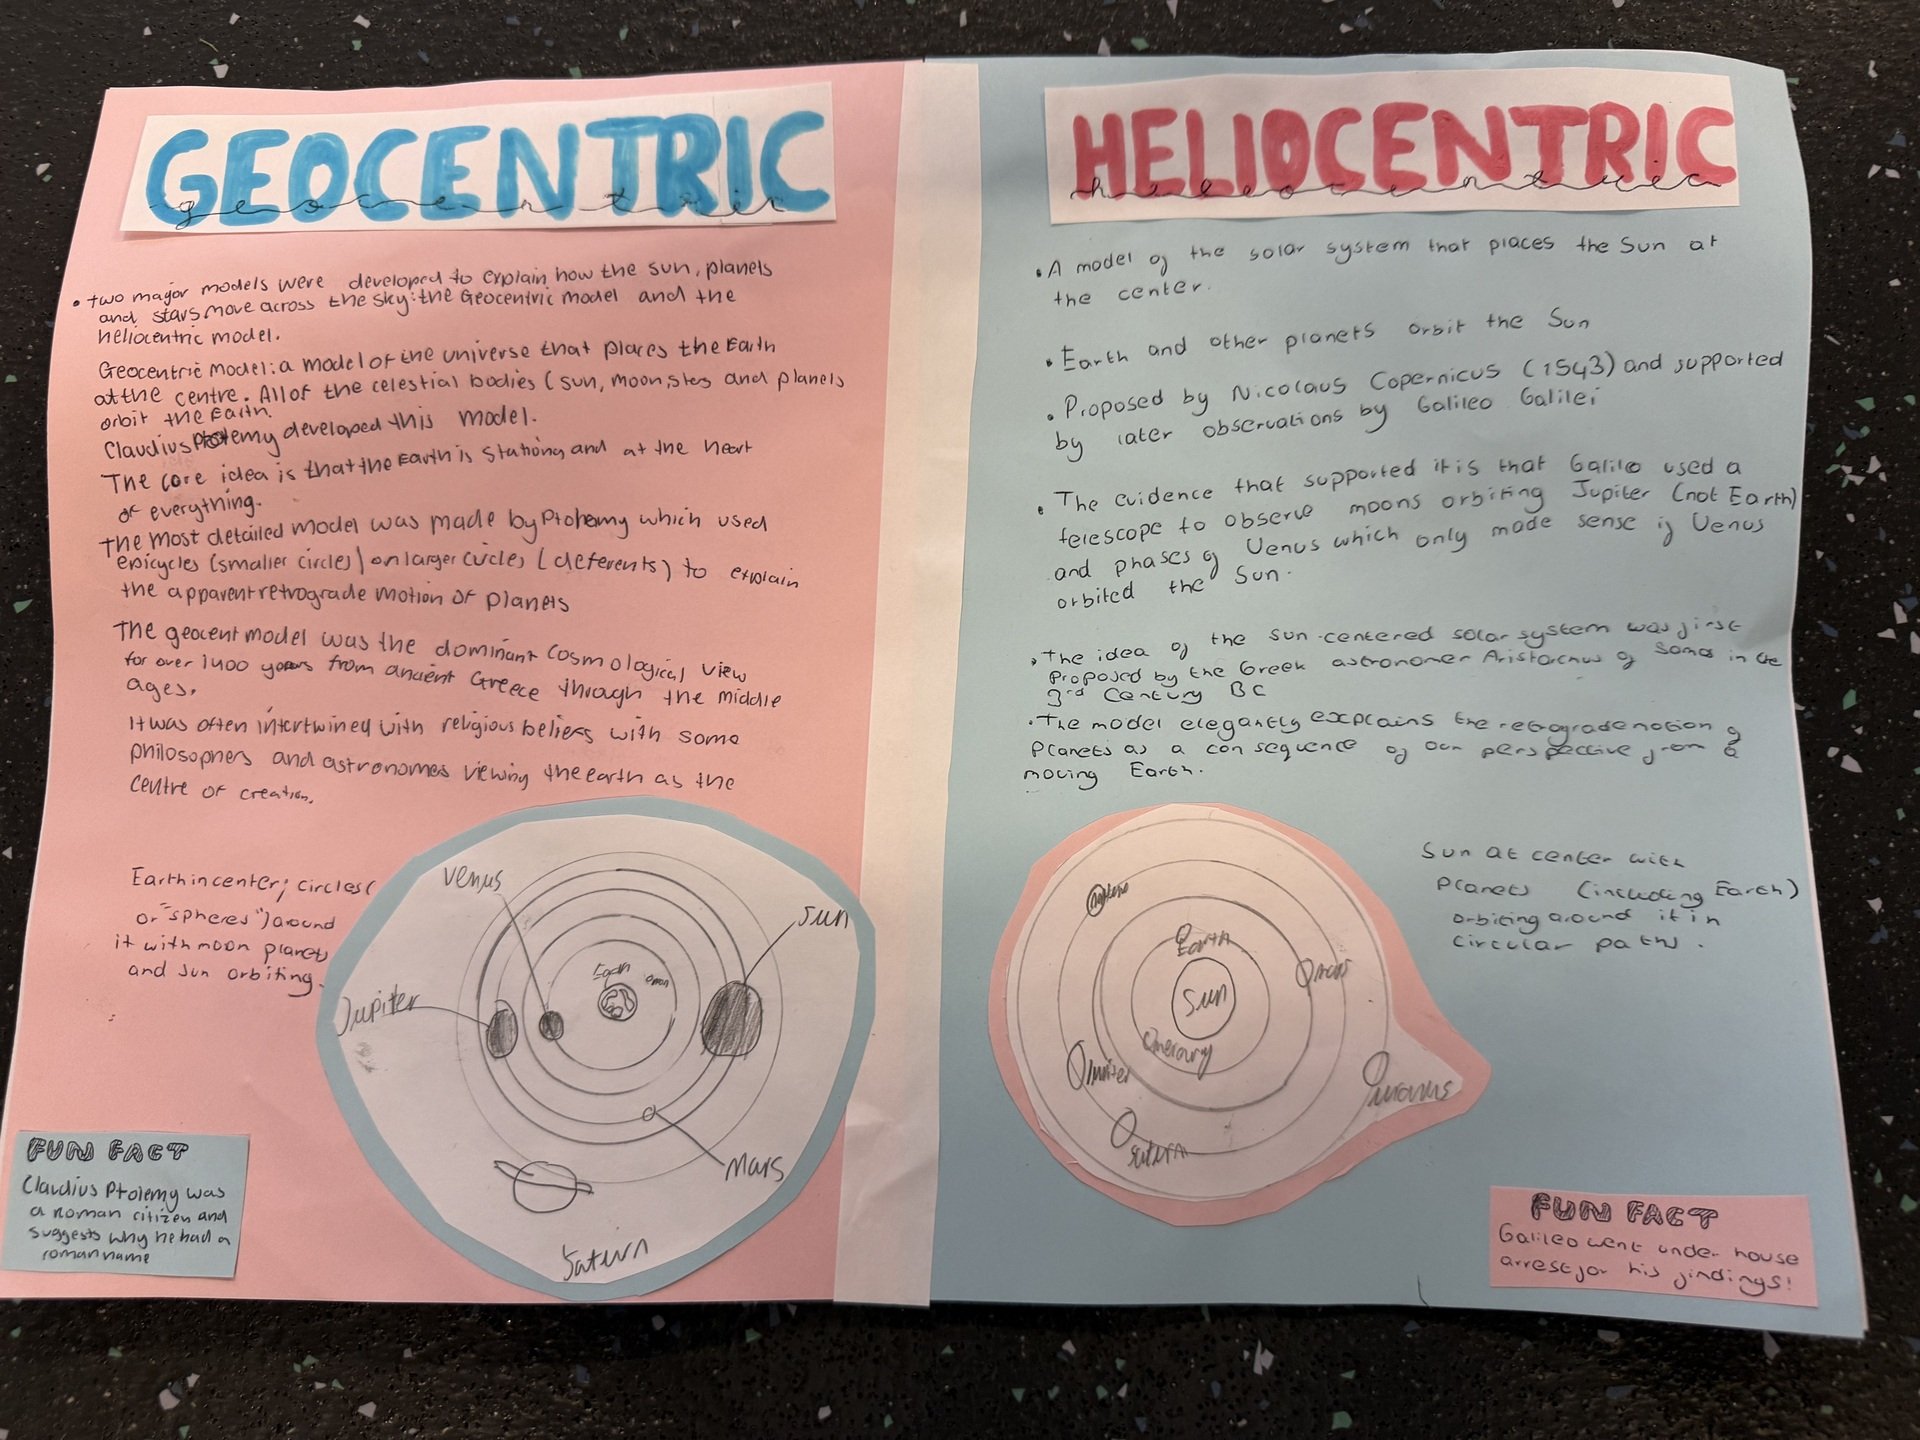 GEOCENTRIC
geocentric
• Two major models were developed to explain how the sun, planets
and stars move across the sky: the Geocentric model and the
heliocentric model.
Geocentric model: a model of the universe that places the Earth
at the centre. All of the celestial bodies (sun, moon, stars and planets
orbit the Earth.
Claudius Ptolemy developed this model.
The core idea is that the Earth is stationg and at the heart
of everything.
The most detailed model was made by Ptolemy which used
epicycles (smaller circles) on larger circles (deferents) to explain
the apparent retrograde motion of planets
The geocent model was the dominant cosmological view
for over 1400 years from ancient Greece through the middle
ages.
It was often intertwined with religious beliefs with some
philosophers and astronomes viewing the earth as the
centre of creation.
Earth in center; circles (
or "spheres") around
it with moon planets
and sun orbiting.
Venus
Sun
Earth
moon
Jupiter
Mars
Saturn
FUN FACT
Claudius Ptolemy was
a roman citizen and
suggests why he had a
roman name
HELIOCENTRIC
heleocentric
• A model of the solar system that places the Sun at
the center.
• Earth and other planets orbit the Sun
• Proposed by Nicolaus Copernicus (1543) and supported
by later observations by Galileo Galilei
• The evidence that supported it is that Galileo used a
telescope to observe moons orbiting Jupiter (not Earth)
and phases of Venus which only made sense if Venus
orbited the Sun.
• The idea of the sun-centered solar system was first
proposed by the Greek astronomer Aristarchus of Samos in the
3rd Century BC
• The model elegantly explains the retrograde motion of
planets as a consequence of our perspective from a
moving Earth.
Sun at center with
planets (including Earth)
orbiting around it in
circular paths.
Earth
mars
Sun
mercury
Jupiter
uranus
saturn
FUN FACT
Galileo went under house
arrest for his findings!